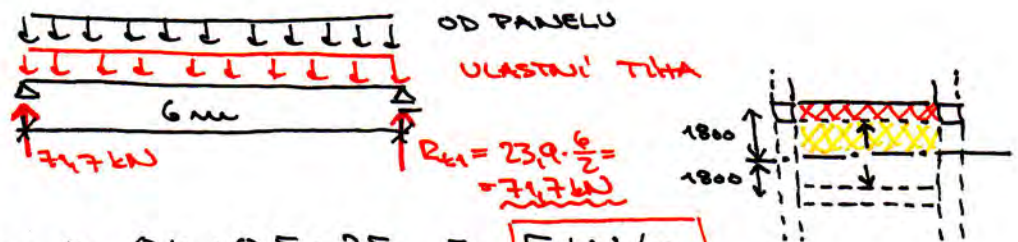 OD PANELU
VLASTNÍ TÍHA
6 m
71,7 kN
R_{k1} = 23,9 · 6/2 =
= 71,7 kN
1800
1800